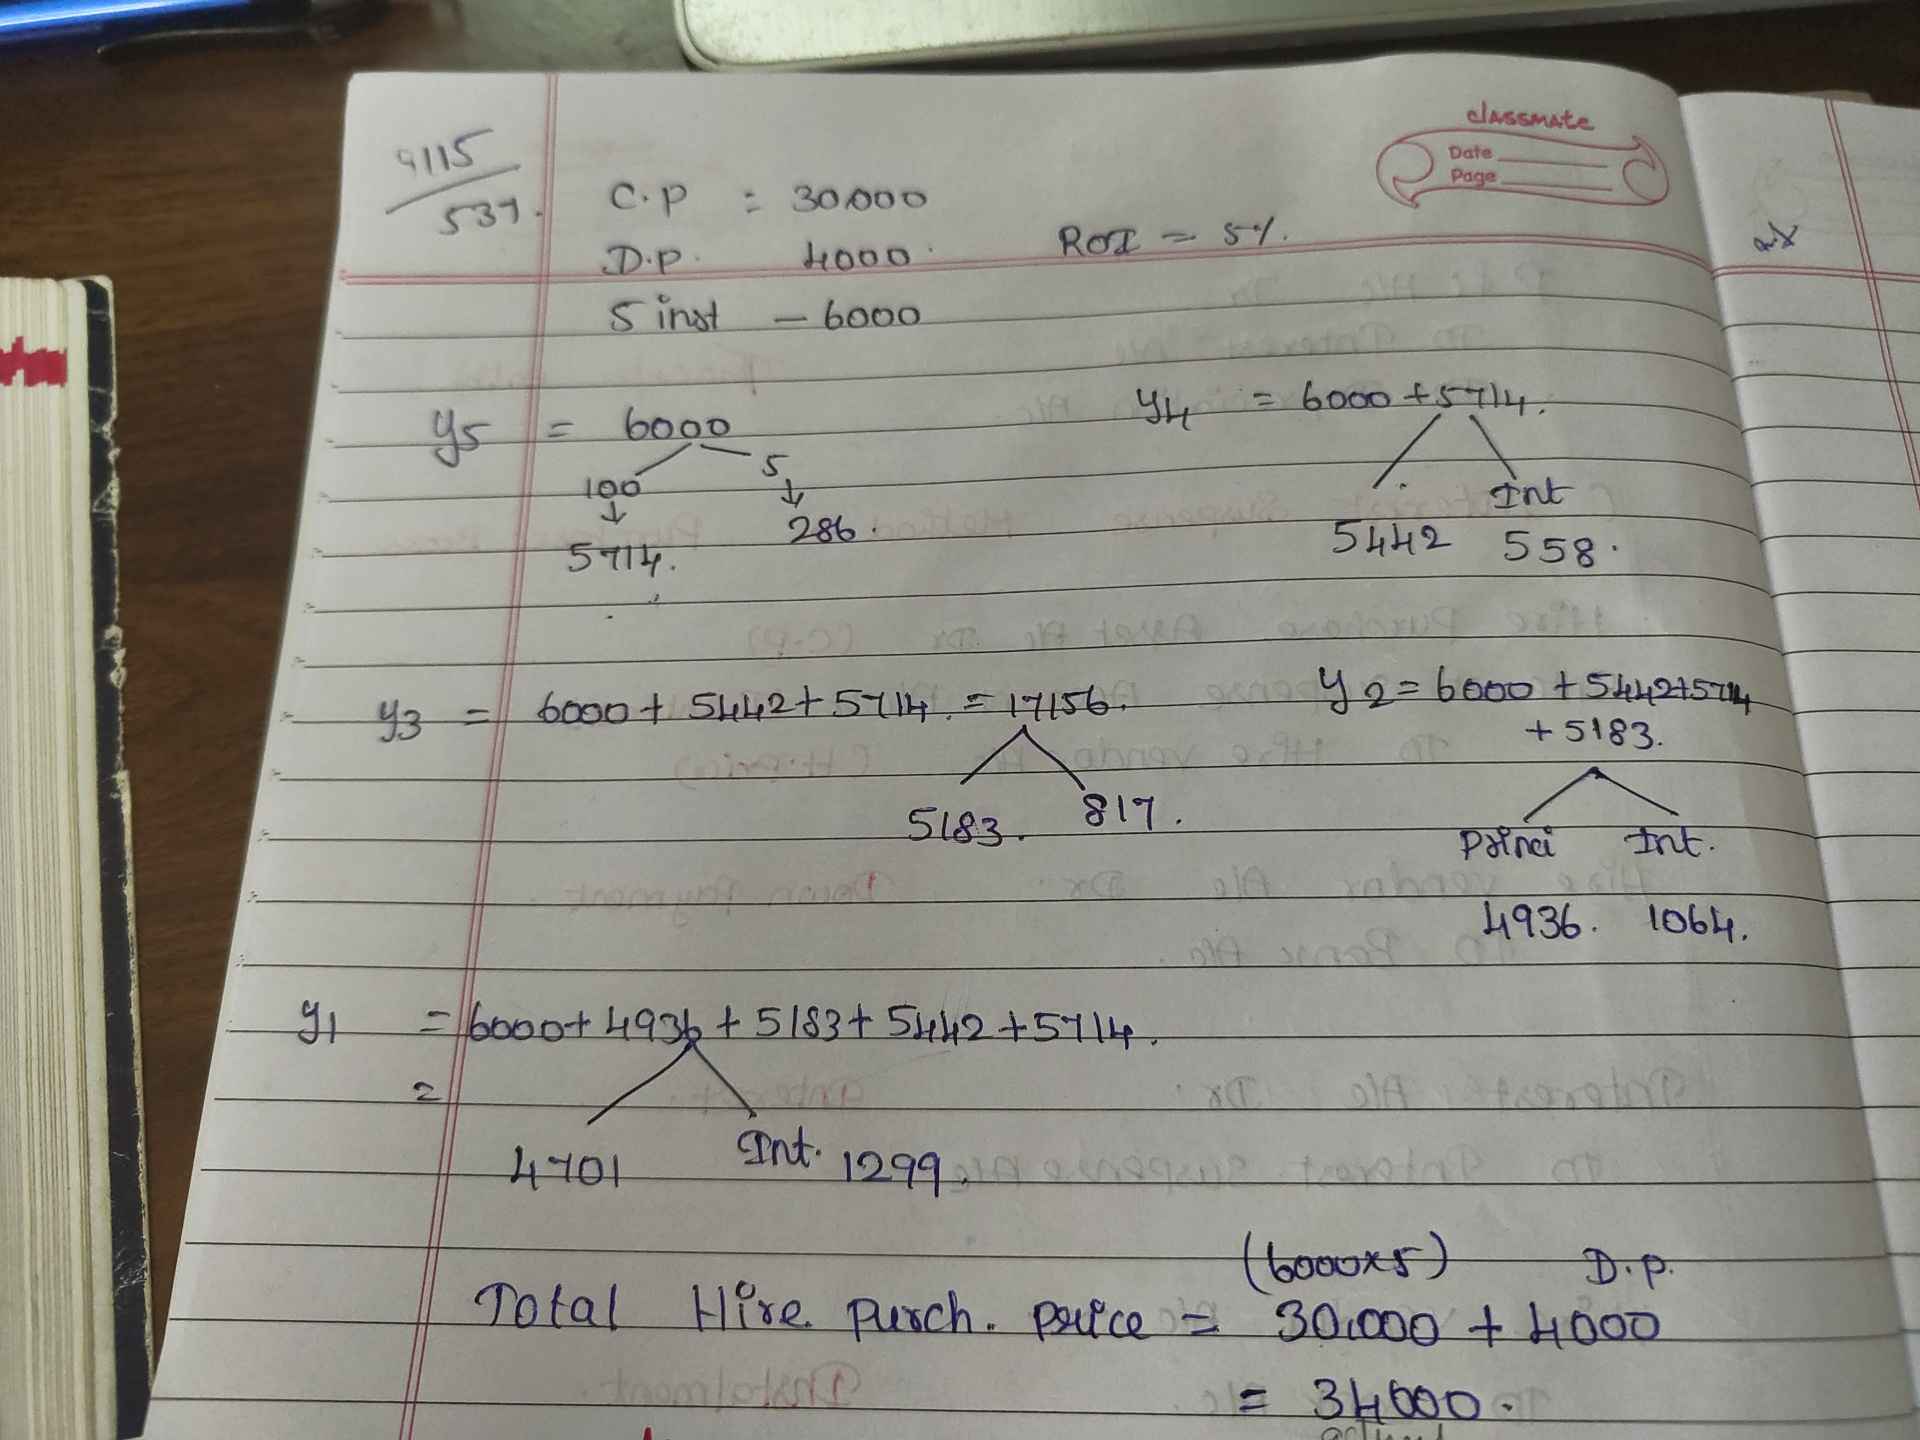 classmate
Date
Page
9115
537.
C.P = 30,000
D.P. 4000.
ROI = 5%.
5 inst - 6000
Y5 = 6000
100 5
5714. 286.
Y4 = 6000 + 5714.
Int
5442 558.
Y3 = 6000 + 5442 + 5714. = 17156.
5183. 817.
Y2 = 6000 + 5442 + 5714
+ 5183.
Princi Int.
4936. 1064.
Y1 = 6000 + 4936 + 5183 + 5442 + 5714.
=
4701 Int. 1299.
(6000x5) D.P.
Total Hire purch. price = 30,000 + 4000
= 34000.